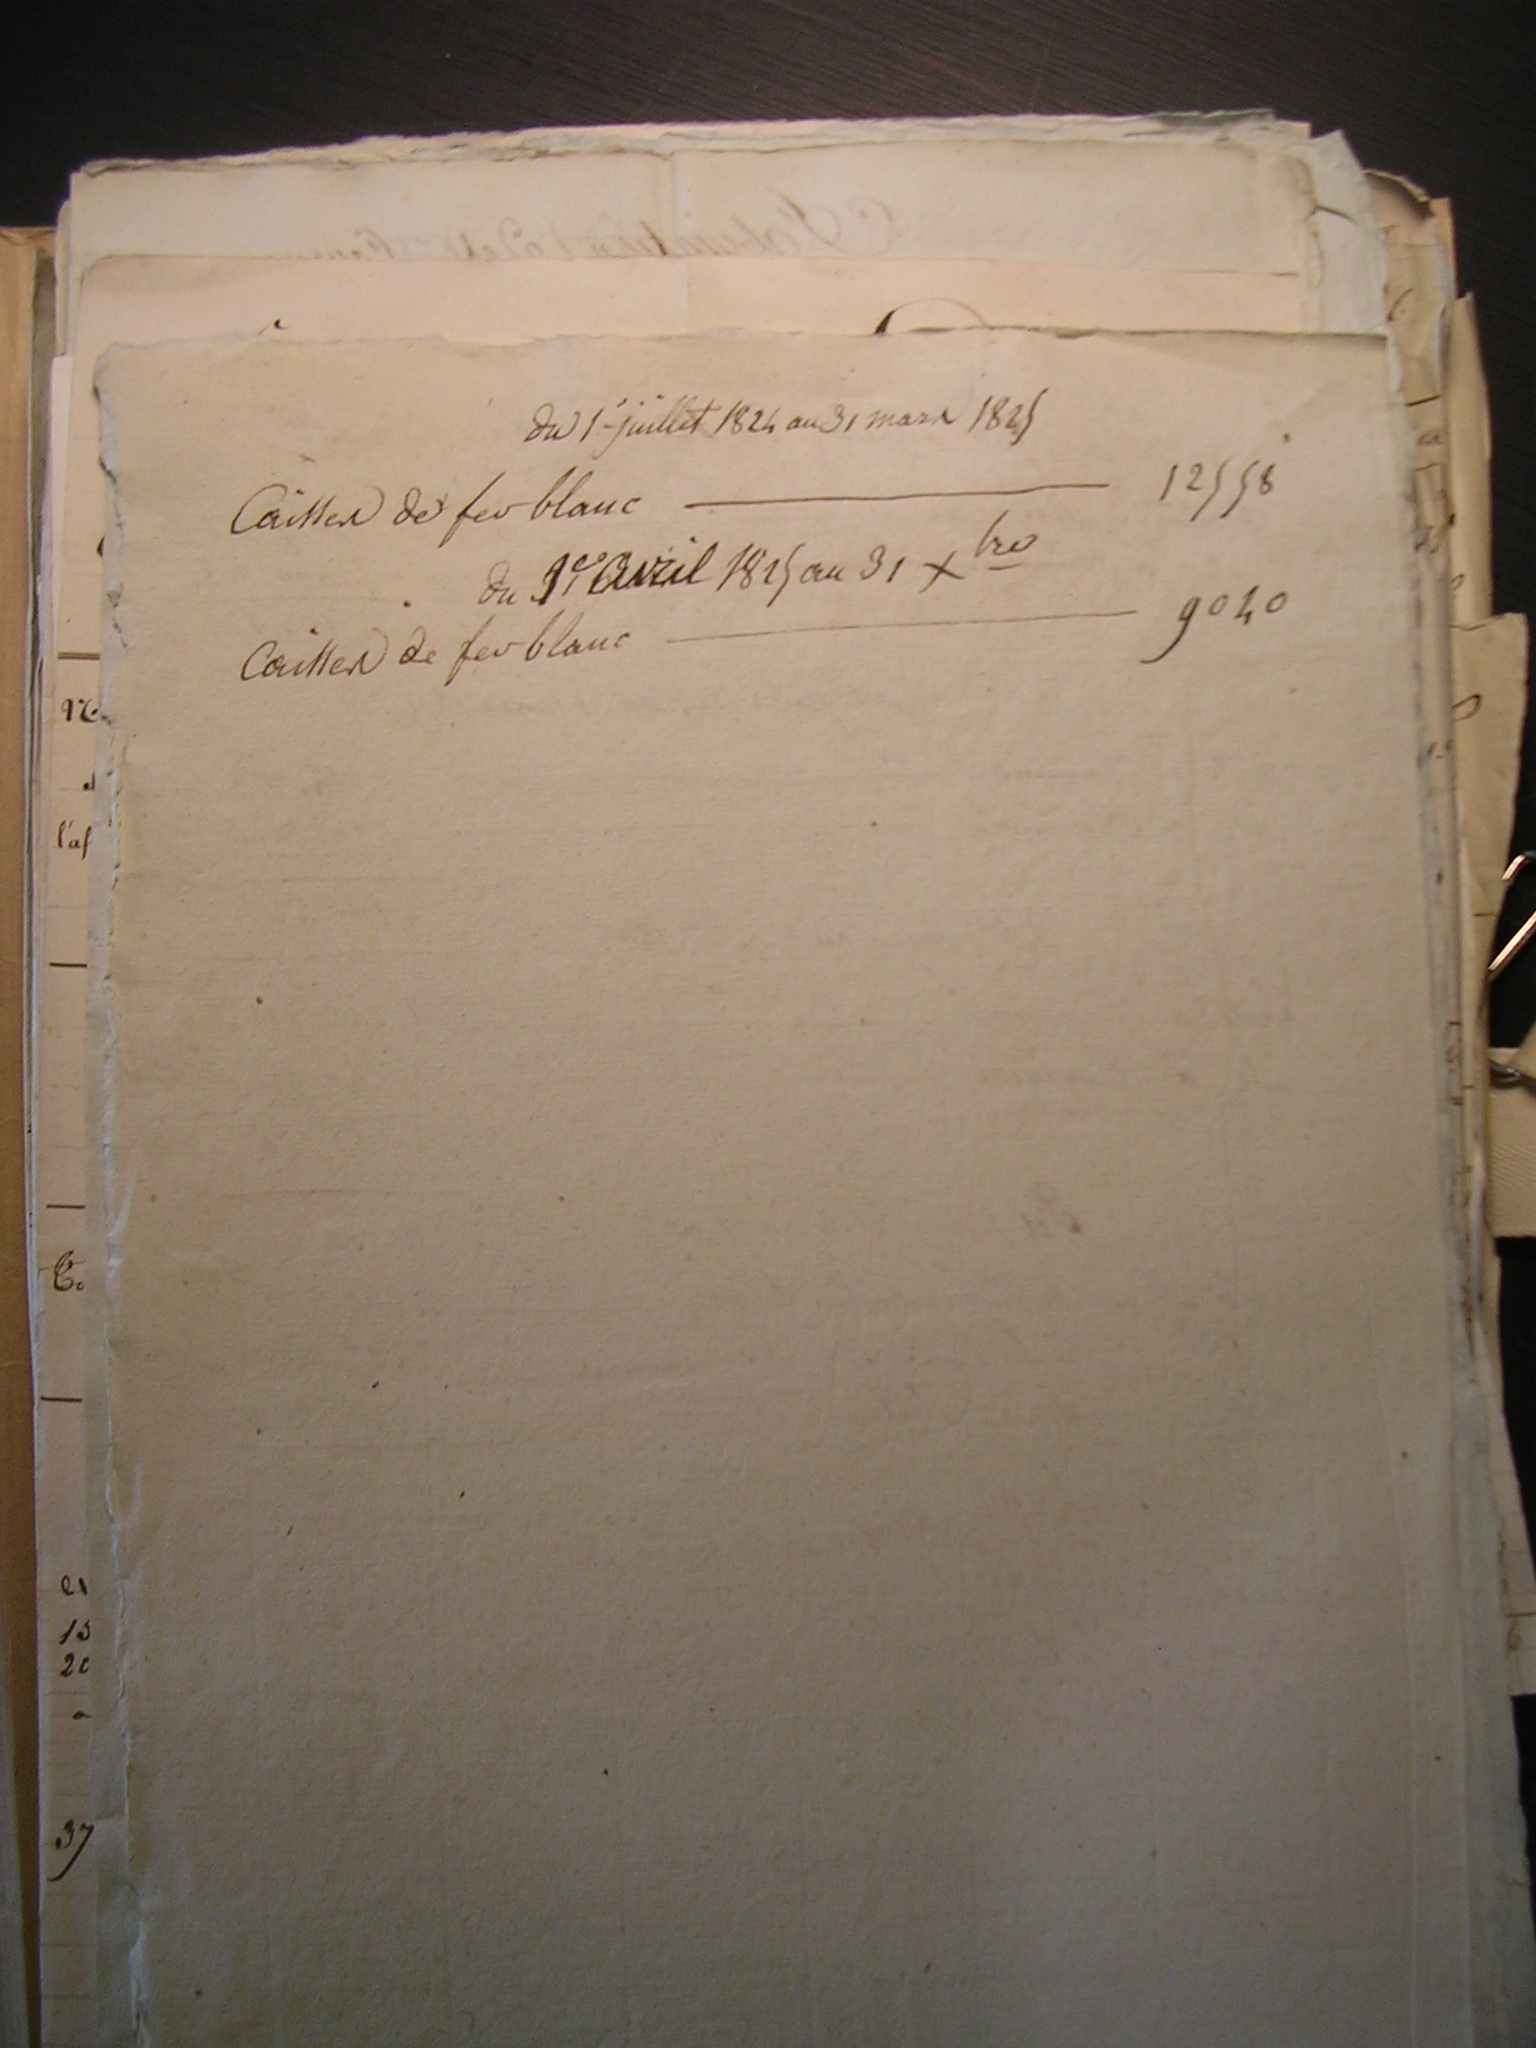 du 1er juillet 1824 au 31 mars 1825
Caisses de fer blanc 12558
du 1er Avril 1825 au 31 Xbre
Caisses de fer blanc 9040
l'af
er
15
20
37